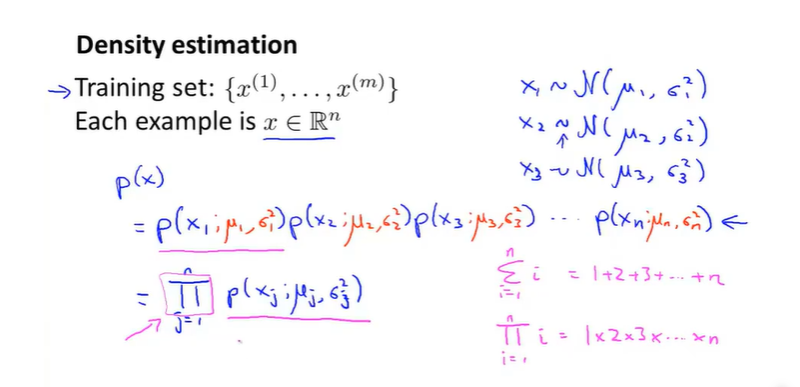 Density estimation
→ Training set: {x^(1), . . . , x^(m)}
Each example is x ∈ ℝ^n
x₁ ~ N(μ₁, σ₁²)
x₂ ~ N(μ₂, σ₂²)
x₃ ~ N(μ₃, σ₃²)
p(x)
= p(x₁; μ₁, σ₁²) p(x₂; μ₂, σ₂²) p(x₃; μ₃, σ₃²) ··· p(xₙ; μₙ, σₙ²) ←
= ∏_{j=1}^{n} p(x_j; μ_j, σ_j²)
∑_{i=1}^{n} i = 1+2+3+···+n
∏_{i=1}^{n} i = 1×2×3×···×n